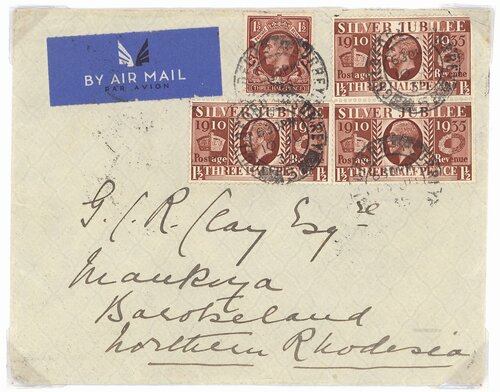 BY AIR MAIL
PAR AVION
1½ 1½
THREE HALFPENCE
SILVER JUBILEE
1910 1935
Postage Revenue
1½ THREE HALFPENCE 1½
SILVER JUBILEE
1910 1935
Postage Revenue
1½ THREE HALFPENCE 1½
SILVER JUBILEE
1910 1935
Postage Revenue
1½ THREE HALFPENCE 1½
G. C. R. Clay Esqre
Barotseland
Northern Rhodesia